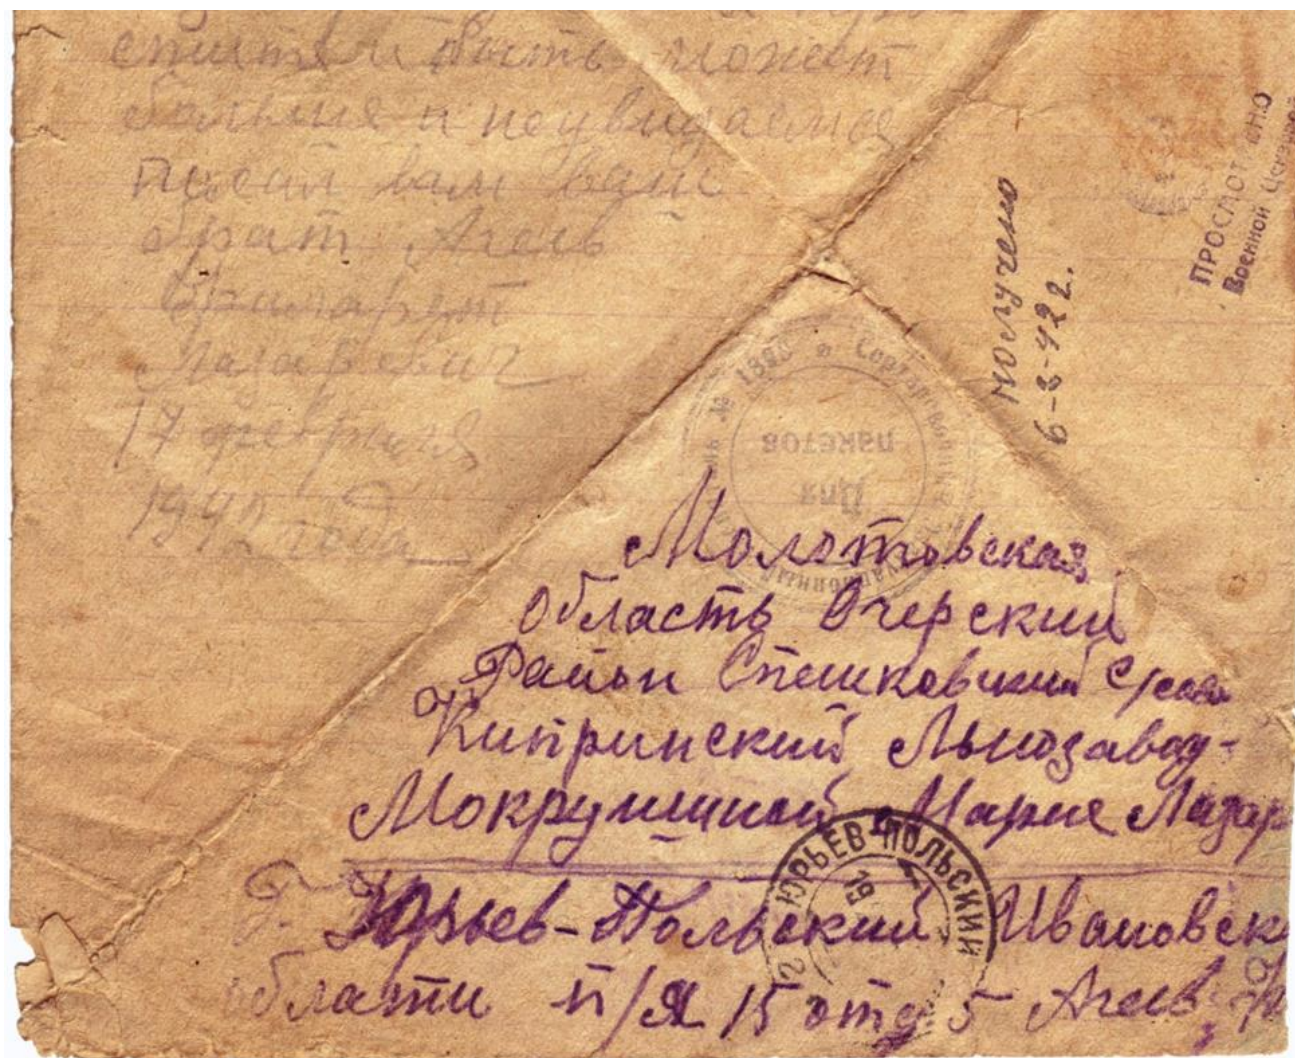 спите и быть может
больше и неувидаемся
писал вам ваш
брат Агеев
Лазаревич
17 февраля
1942 года
получено
6-8-42 г.
Военной Цензурой
№ 1890
Для
пакетов
Молотовская
область Очерский
Район Спешковский с/совет
Кипринский Льнозавод-
Мокрушиной Марие Лазар
ЮРЬЕВ-ПОЛЬСКИЙ
19
г. Юрьев-Польский Ивановск
области п/я 15 отд 5 Агеев